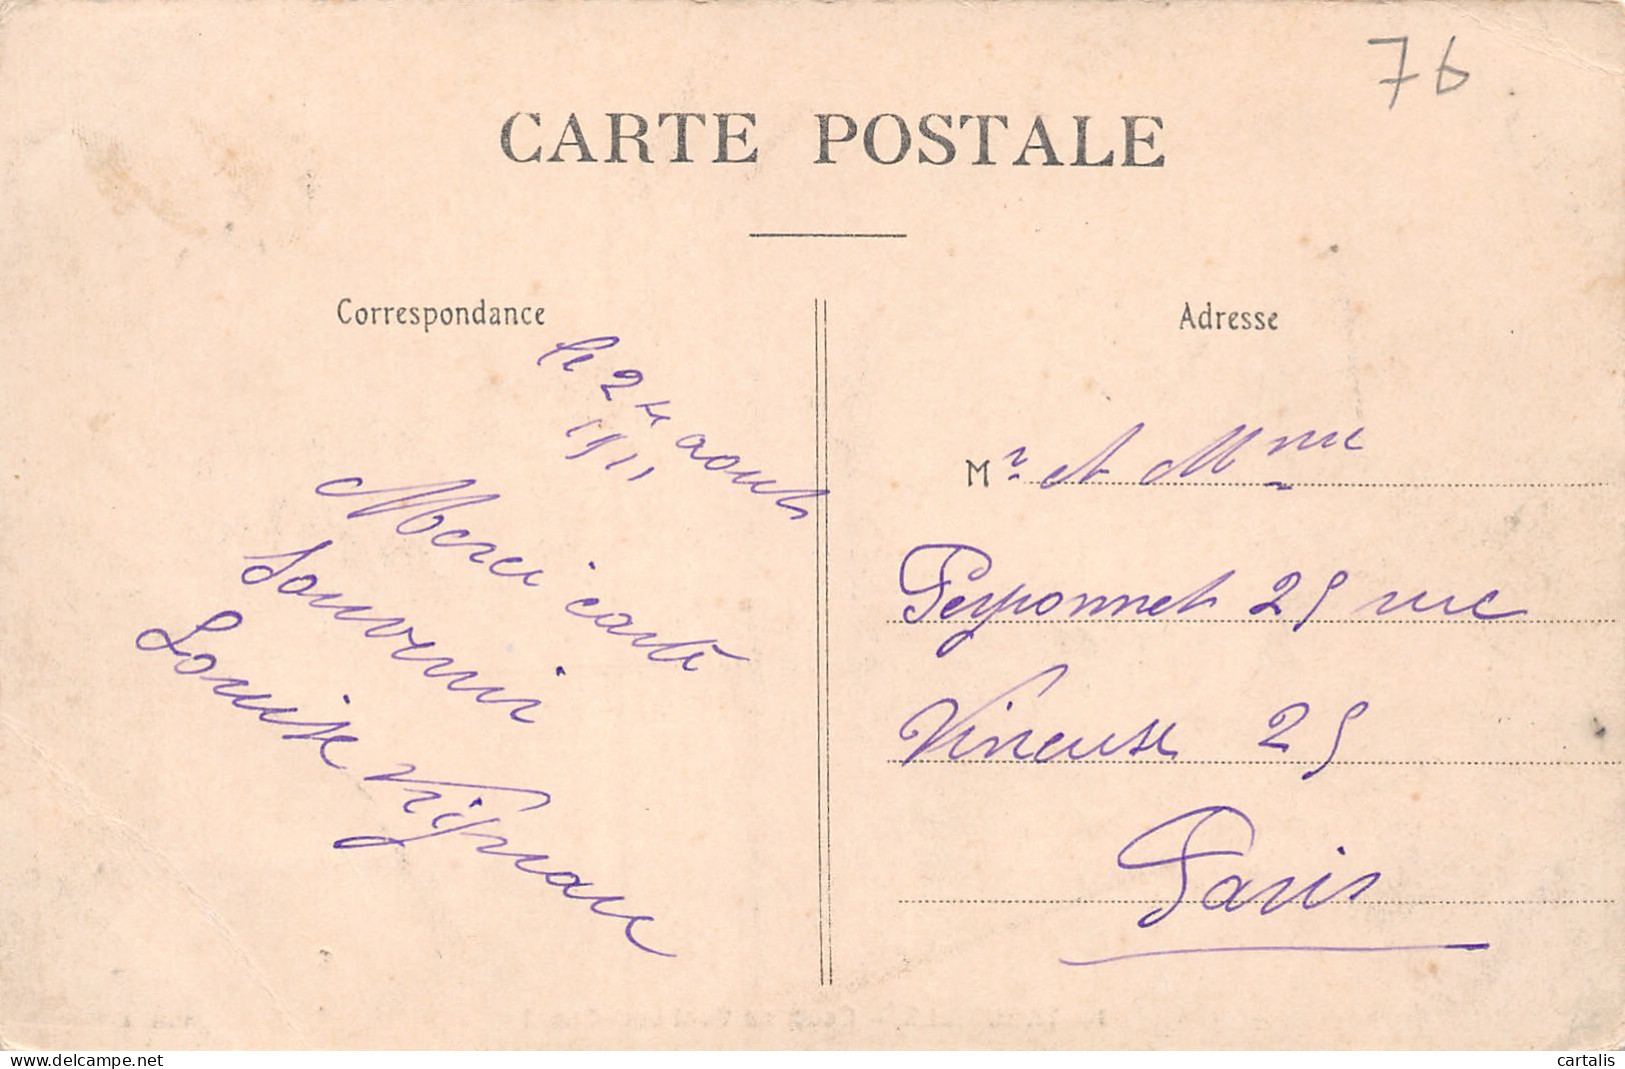 76
CARTE POSTALE
Correspondance
le 24 aout
1911
Merci carte
Souvenir
Louise Vigneau
Adresse
Mr et Mme
Peyronnet 25 rue
Vineuse 25
Paris
delcampe.net
cartalis